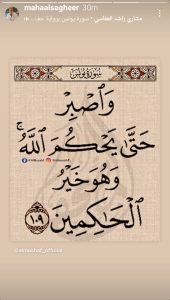 mahaalsagheer 30m
مشاري راشد العفاسي • سورة يونس برواية حف...
سُورَةُ يُونُسَ
وَٱصۡبِرۡ
حَتَّىٰ يَحۡكُمَ ٱللَّهُۚ
وَهُوَ خَيۡرُ
ٱلۡحَٰكِمِينَ ١٠٩
@almoshaf_official